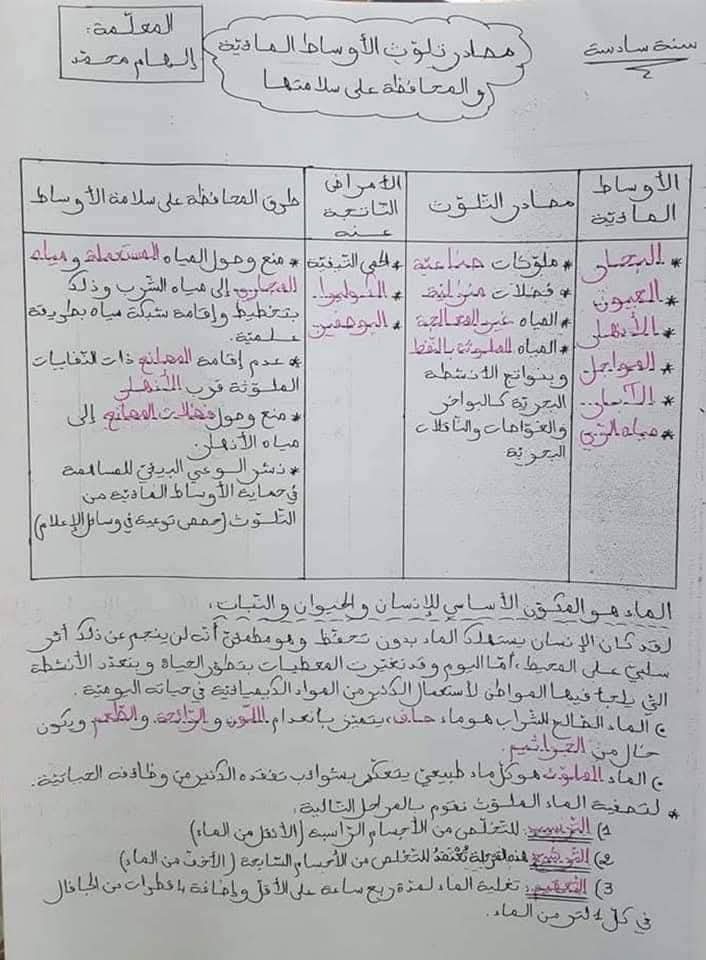 سنة سادسة
مصادر تلوّث الأوساط المائيّة
والمحافظة على سلامتها
المعلّمة:
إلهام محمد
الأوساط المائيّة
* البحار
* العيون
* الأنهار
* المواجل
* الآبار
* مياه الريّ
مصادر التلوّث
* ملوّثات صناعيّة
* فضلات منزليّة
* المياه غير المعالجة
* المياه الملوّثة بالنفط
وبنواتج الأنشطة
البحريّة كالبواخر
والغوّاصات والنّاقلات
البحريّة
الأمراض
النّاتجة
عنه
* الحمى التيفيّة
* الكوليرا
* البوصفير
طرق المحافظة على سلامة الأوساط
* منع وصول المياه المستعملة ومياه
المجاري إلى مياه الشّرب وذلك
بتخطيط وإقامة شبكة مياه بطريقة
علميّة.
* عدم إقامة المصانع ذات النّفايات
الملوّثة قرب الأنهار
* منع وصول فضلات المصانع إلى
مياه الأنهار.
* نشر الوعي البيئي للمساهمة
في حماية الأوساط المائيّة من
التلوّث (حصص توعية في وسائل الإعلام)
الماء هو المكوّن الأساسي للإنسان والحيوان والنّبات:
لقد كان الإنسان يستهلك الماء بدون تحفّظ وهو مطمئنّ أنّه لن ينجم عن ذلك أثر
سلبيّ على المحيط، أمّا اليوم وقد تغيّرت المعطيات بتطوّر الحياة وبتعدّد الأنشطة
التي يلجأ فيها المواطن لاستعمال الكثير من المواد الكيميائيّة في حياته اليوميّة.
الماء الصّالح للشّراب هو ماء صاف، يتميّز بانعدام اللّون والرّائحة والطّعم ويكون
خال من الجراثيم.
الماء الملوّث هو كلّ ماء طبيعيّ يتعكّر بشوائب تفقده الكثير من وظائفه الحياتيّة.
* لتصفية الماء الملوّث نقوم بالمراحل التالية:
1) التّرسيب: للتخلّص من الأجسام الرّاسبة (الأثقل من الماء)
2) التّرشيح: هذه المرحلة تُعْتَمَدُ للتخلّص من الأجسام السّابحة (الأخفّ من الماء)
3) التّعقيم: تغلية الماء لمدّة ربع ساعة على الأقلّ وإضافة 4 قطرات من الجافال
في كلّ 1 لتر من الماء.